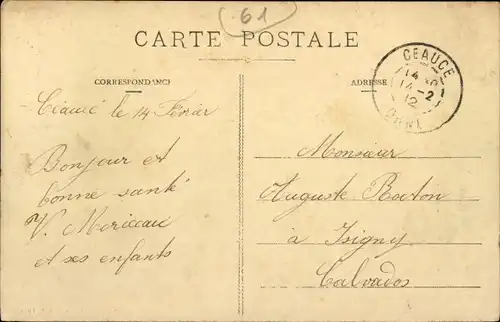 61
CARTE POSTALE
CORRESPONDANCE
ADRESSE
CEAUCÉ
14-2
12
ORNE
Céaucé le 14 Février
Bonjour et
bonne santé
V. Morineau
et ses enfants
Monsieur
Auguste Rocton
à Isigny
Calvados